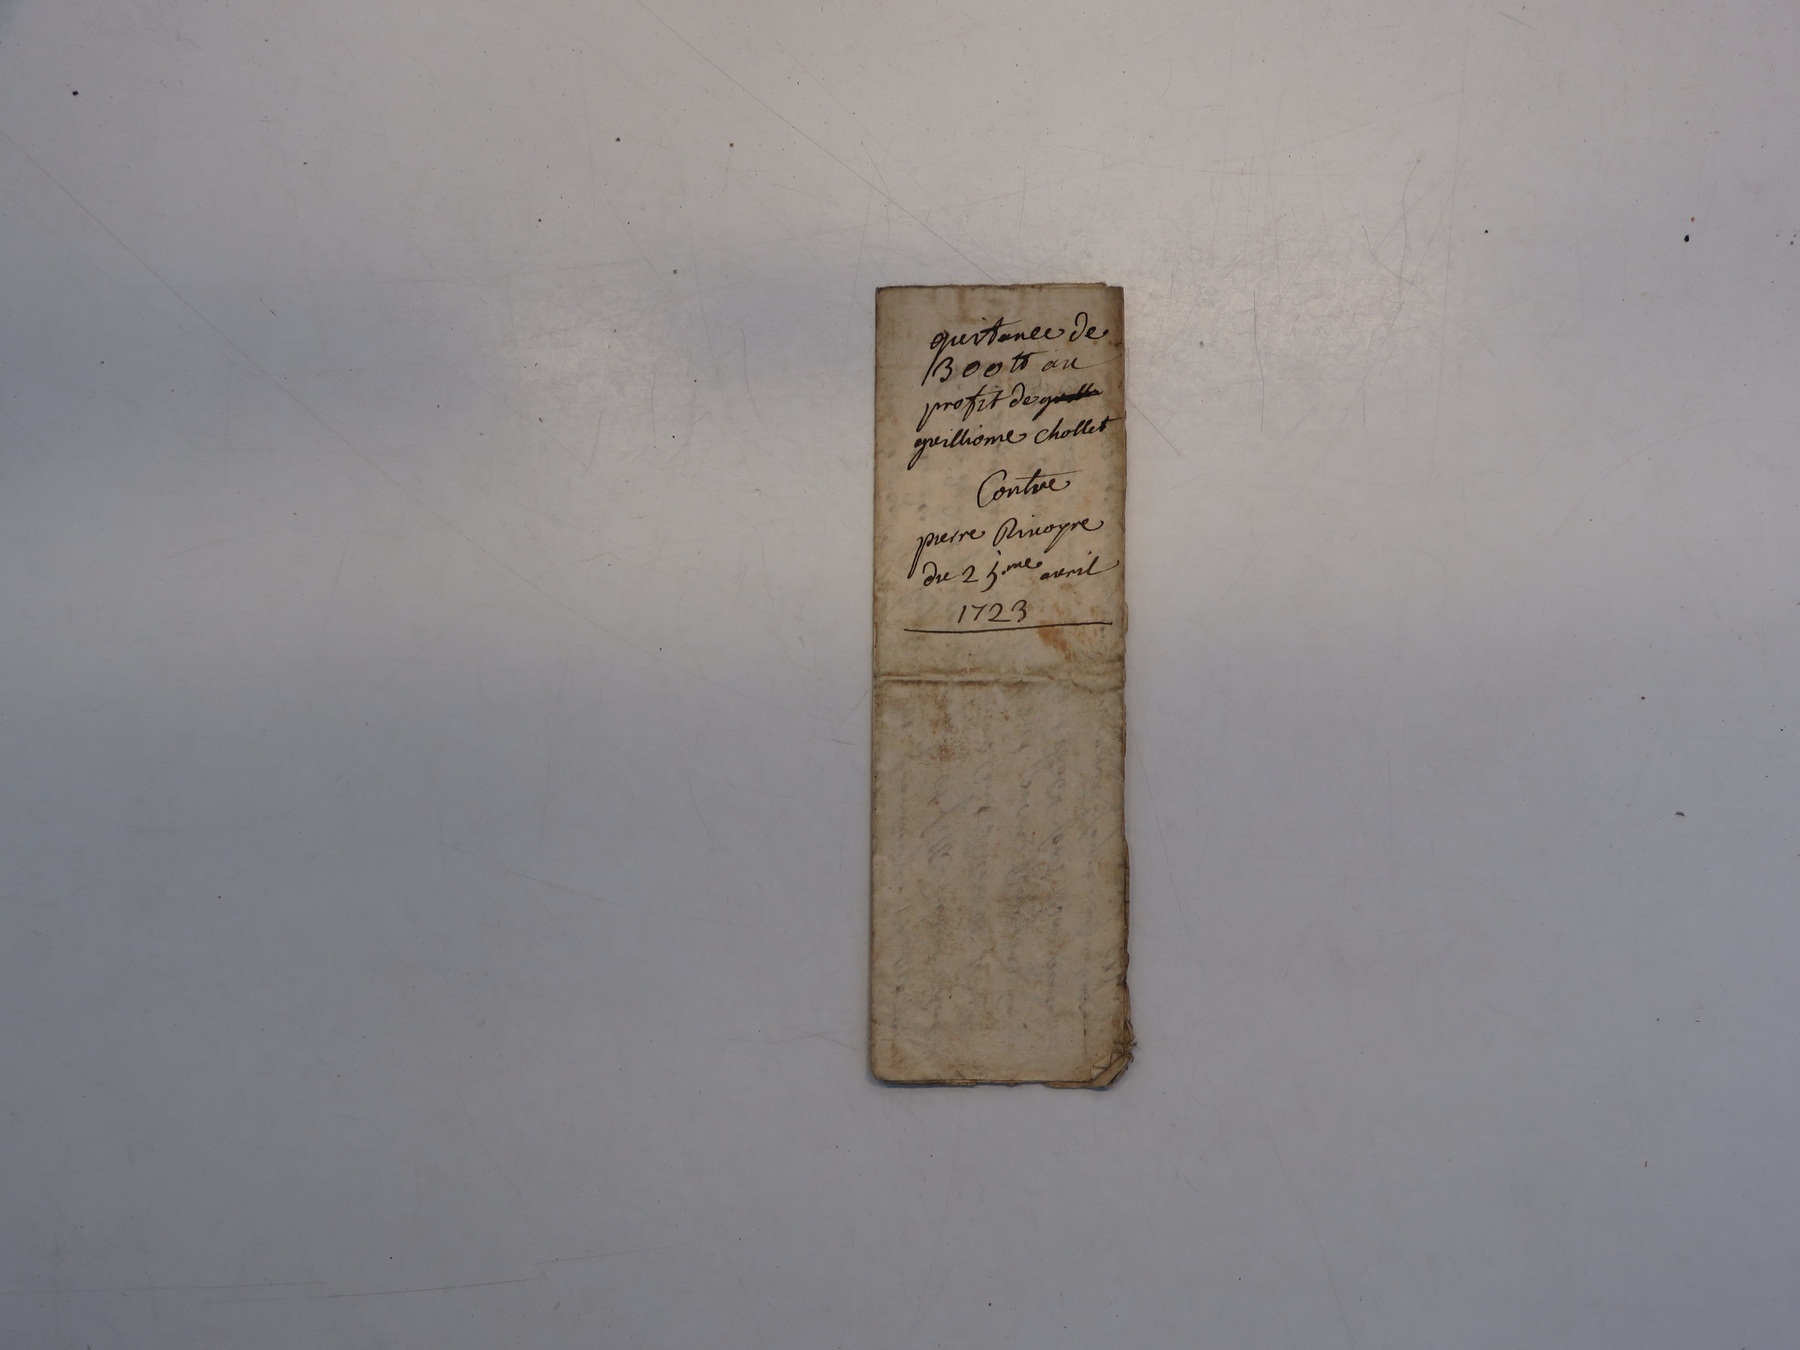 quitance de
300tt au
profit de
guilliome chollet
Contre
pierre Rivoyre
du 25eme avril
1723